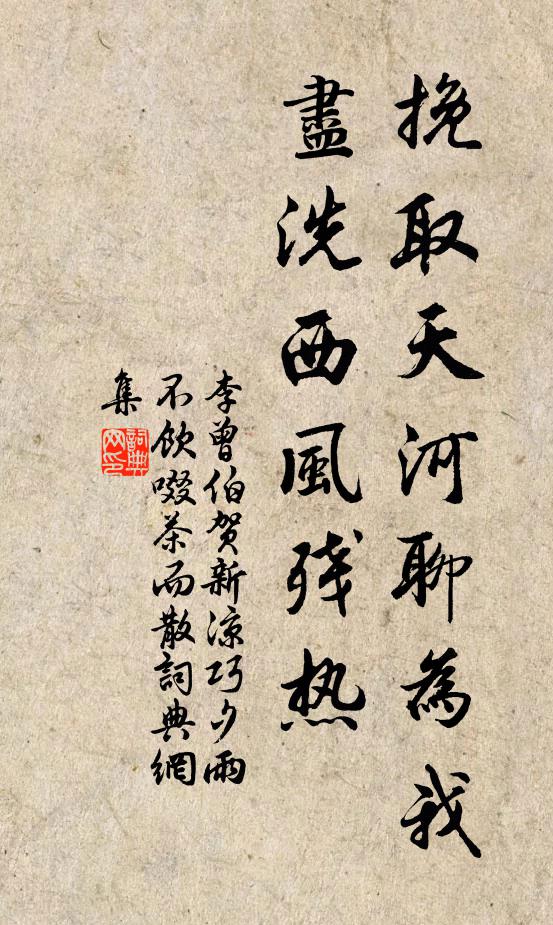 挽取天河聊為我
盡洗西風残热
李曾伯贺新涼巧夕雨
不飲啜茶而散詞典網
集
詞典
网印